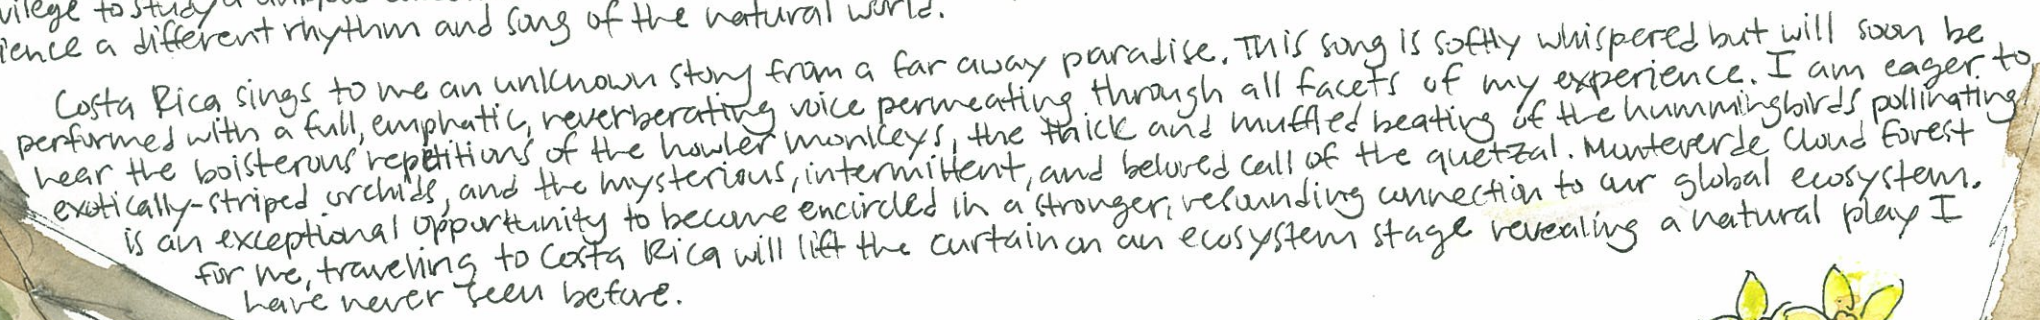 vilege to study a
ience a different rhythm and song of the natural world.
Costa Rica sings to me an unknown story from a far away paradise. This song is softly whispered but will soon be
performed with a full, emphatic, reverberating voice permeating through all facets of my experience. I am eager to
hear the boisterous repetitions of the howler monkeys, the thick and muffled beating of the hummingbirds pollinating
exotically-striped orchids, and the mysterious, intermittent, and beloved call of the quetzal. Monteverde Cloud Forest
is an exceptional opportunity to become encircled in a stronger, resounding connection to our global ecosystem.
for me, traveling to Costa Rica will lift the curtain on an ecosystem stage revealing a natural play I
have never seen before.